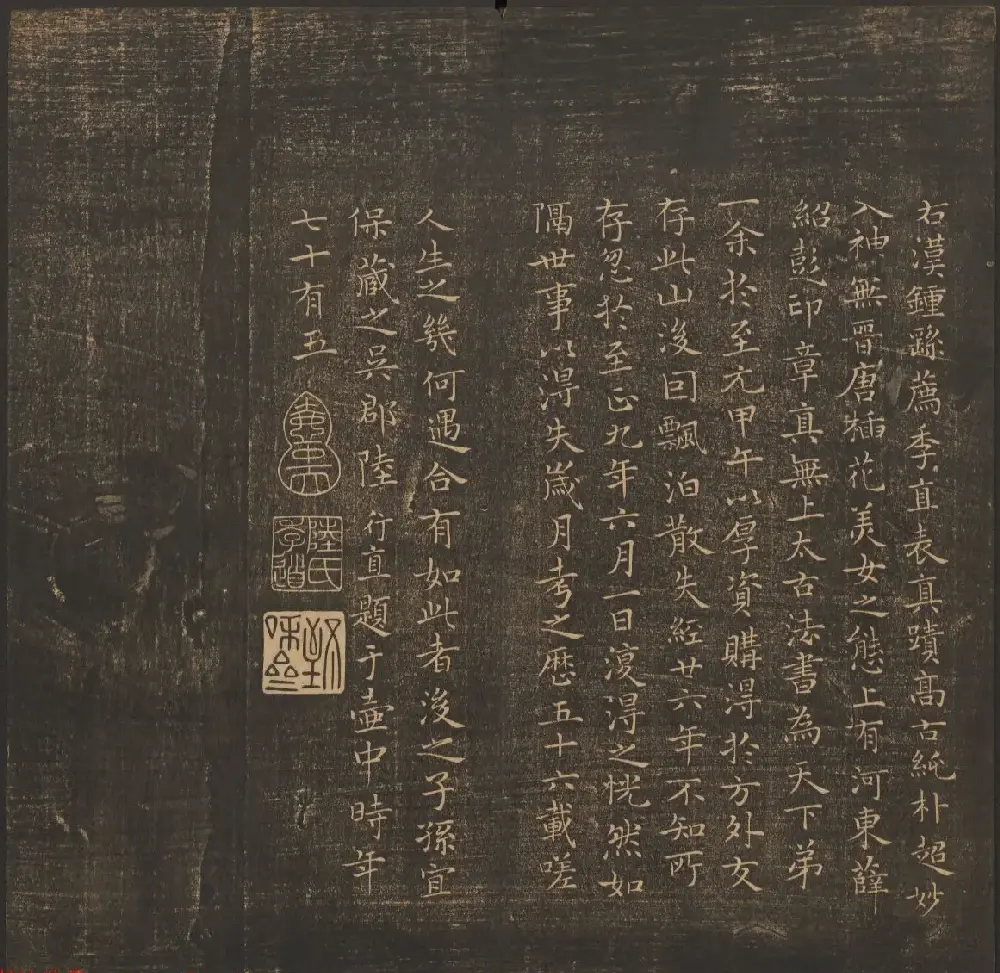 右漢鍾繇薦季直表真蹟高古純朴超妙
入神無晉唐插花美女之態上有河東薛
紹彭印章真無上太古法書為天下弟
一余於至元甲午以厚資購得於方外友
存此山後回飄泊散失經廿六年不知所
存忽於至正九年六月一日復得之恍然如
隔世事以得失歲月考之歷五十六載嗟
人生之幾何遇合有如此者後之子孫宜
保藏之吳郡陸行直題于壺中時年
七十有五
陸氏
子道